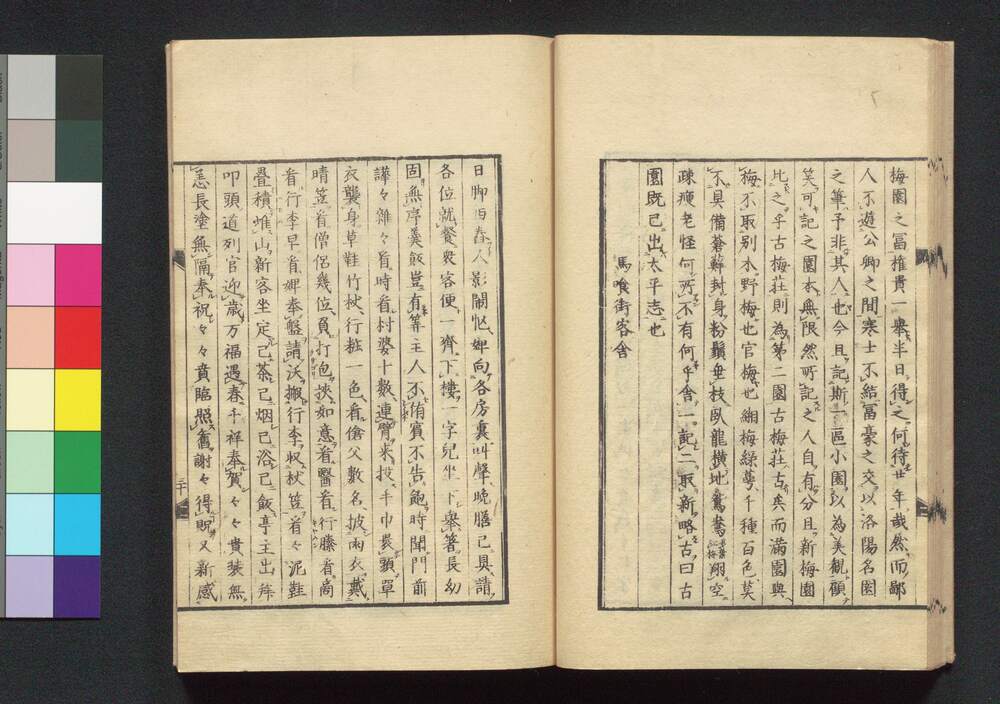 梅園之冨権貴一挙半日得之何待廿年哉然而鄙
人不遊公卿之間寒士不結冨豪之交以洛陽名園
之筆予非其人也今且記斯一區小園以為美観顧
笑可記之園本無限然所記之人自有分且新梅園
比之乎古梅莊則為第二園古梅莊古矣而滿園與
梅不取別木野梅也官梅也緗梅緑萼千種百色莫
不具備蒼蘚封身粉鬚垂枝臥龍横地鴛鴦翔空
疎瘦老怪何所不有何乎舎一記二取新略古曰古
園既已出太平志也
馬喰街客舎
日脚旧舂人影閙忙婢向各房裏叫聲晩膳已具請
各位就餐衆客便一齊下樓一字兒坐下挙箸長幼
固無序羹飯豈有等主人不侑賓不告飽時聞門前
譁々雜々旨時看村婆十數連臂来投手巾裝頭單
衣襲身草鞋竹杖行粧一色看傖父數名披雨衣戴
晴笠看僧侶幾位負打包挾如意看醫看行縢看商
看行李早看婢奉盤請沃搬行李収杖笠看々泥鞋
疊積堆山新客坐定已茶已烟已浴已飯亭主出拜
叩頭道列官迎歳万福遇春千祥奉賀々々貴装無
恙長塗無隔奉祝々々賁臨照舊謝々得貺又新感
二十